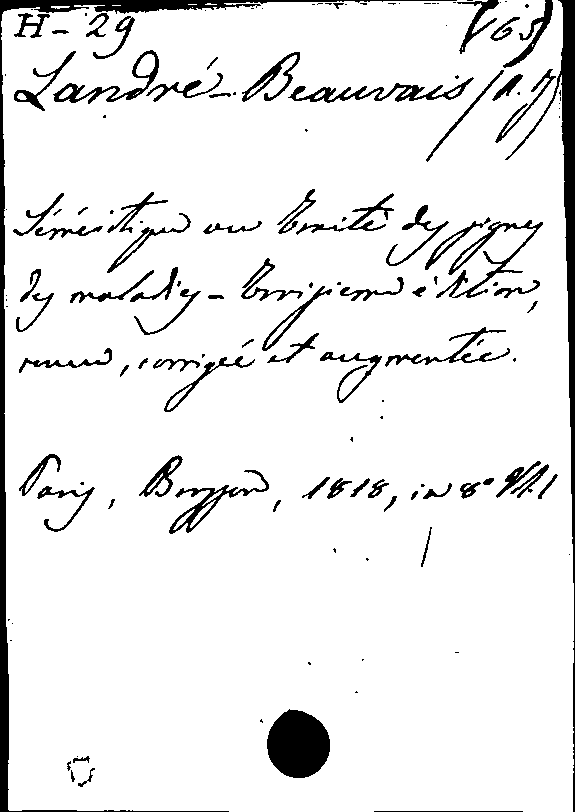 H-29 (65)
Landré-Beauvais (A. J)
Séméiotique ou Traité des signes
des maladies - Troisième édition,
revue, corrigée et augmentée.
Paris, Brosson, 1818, in 8°